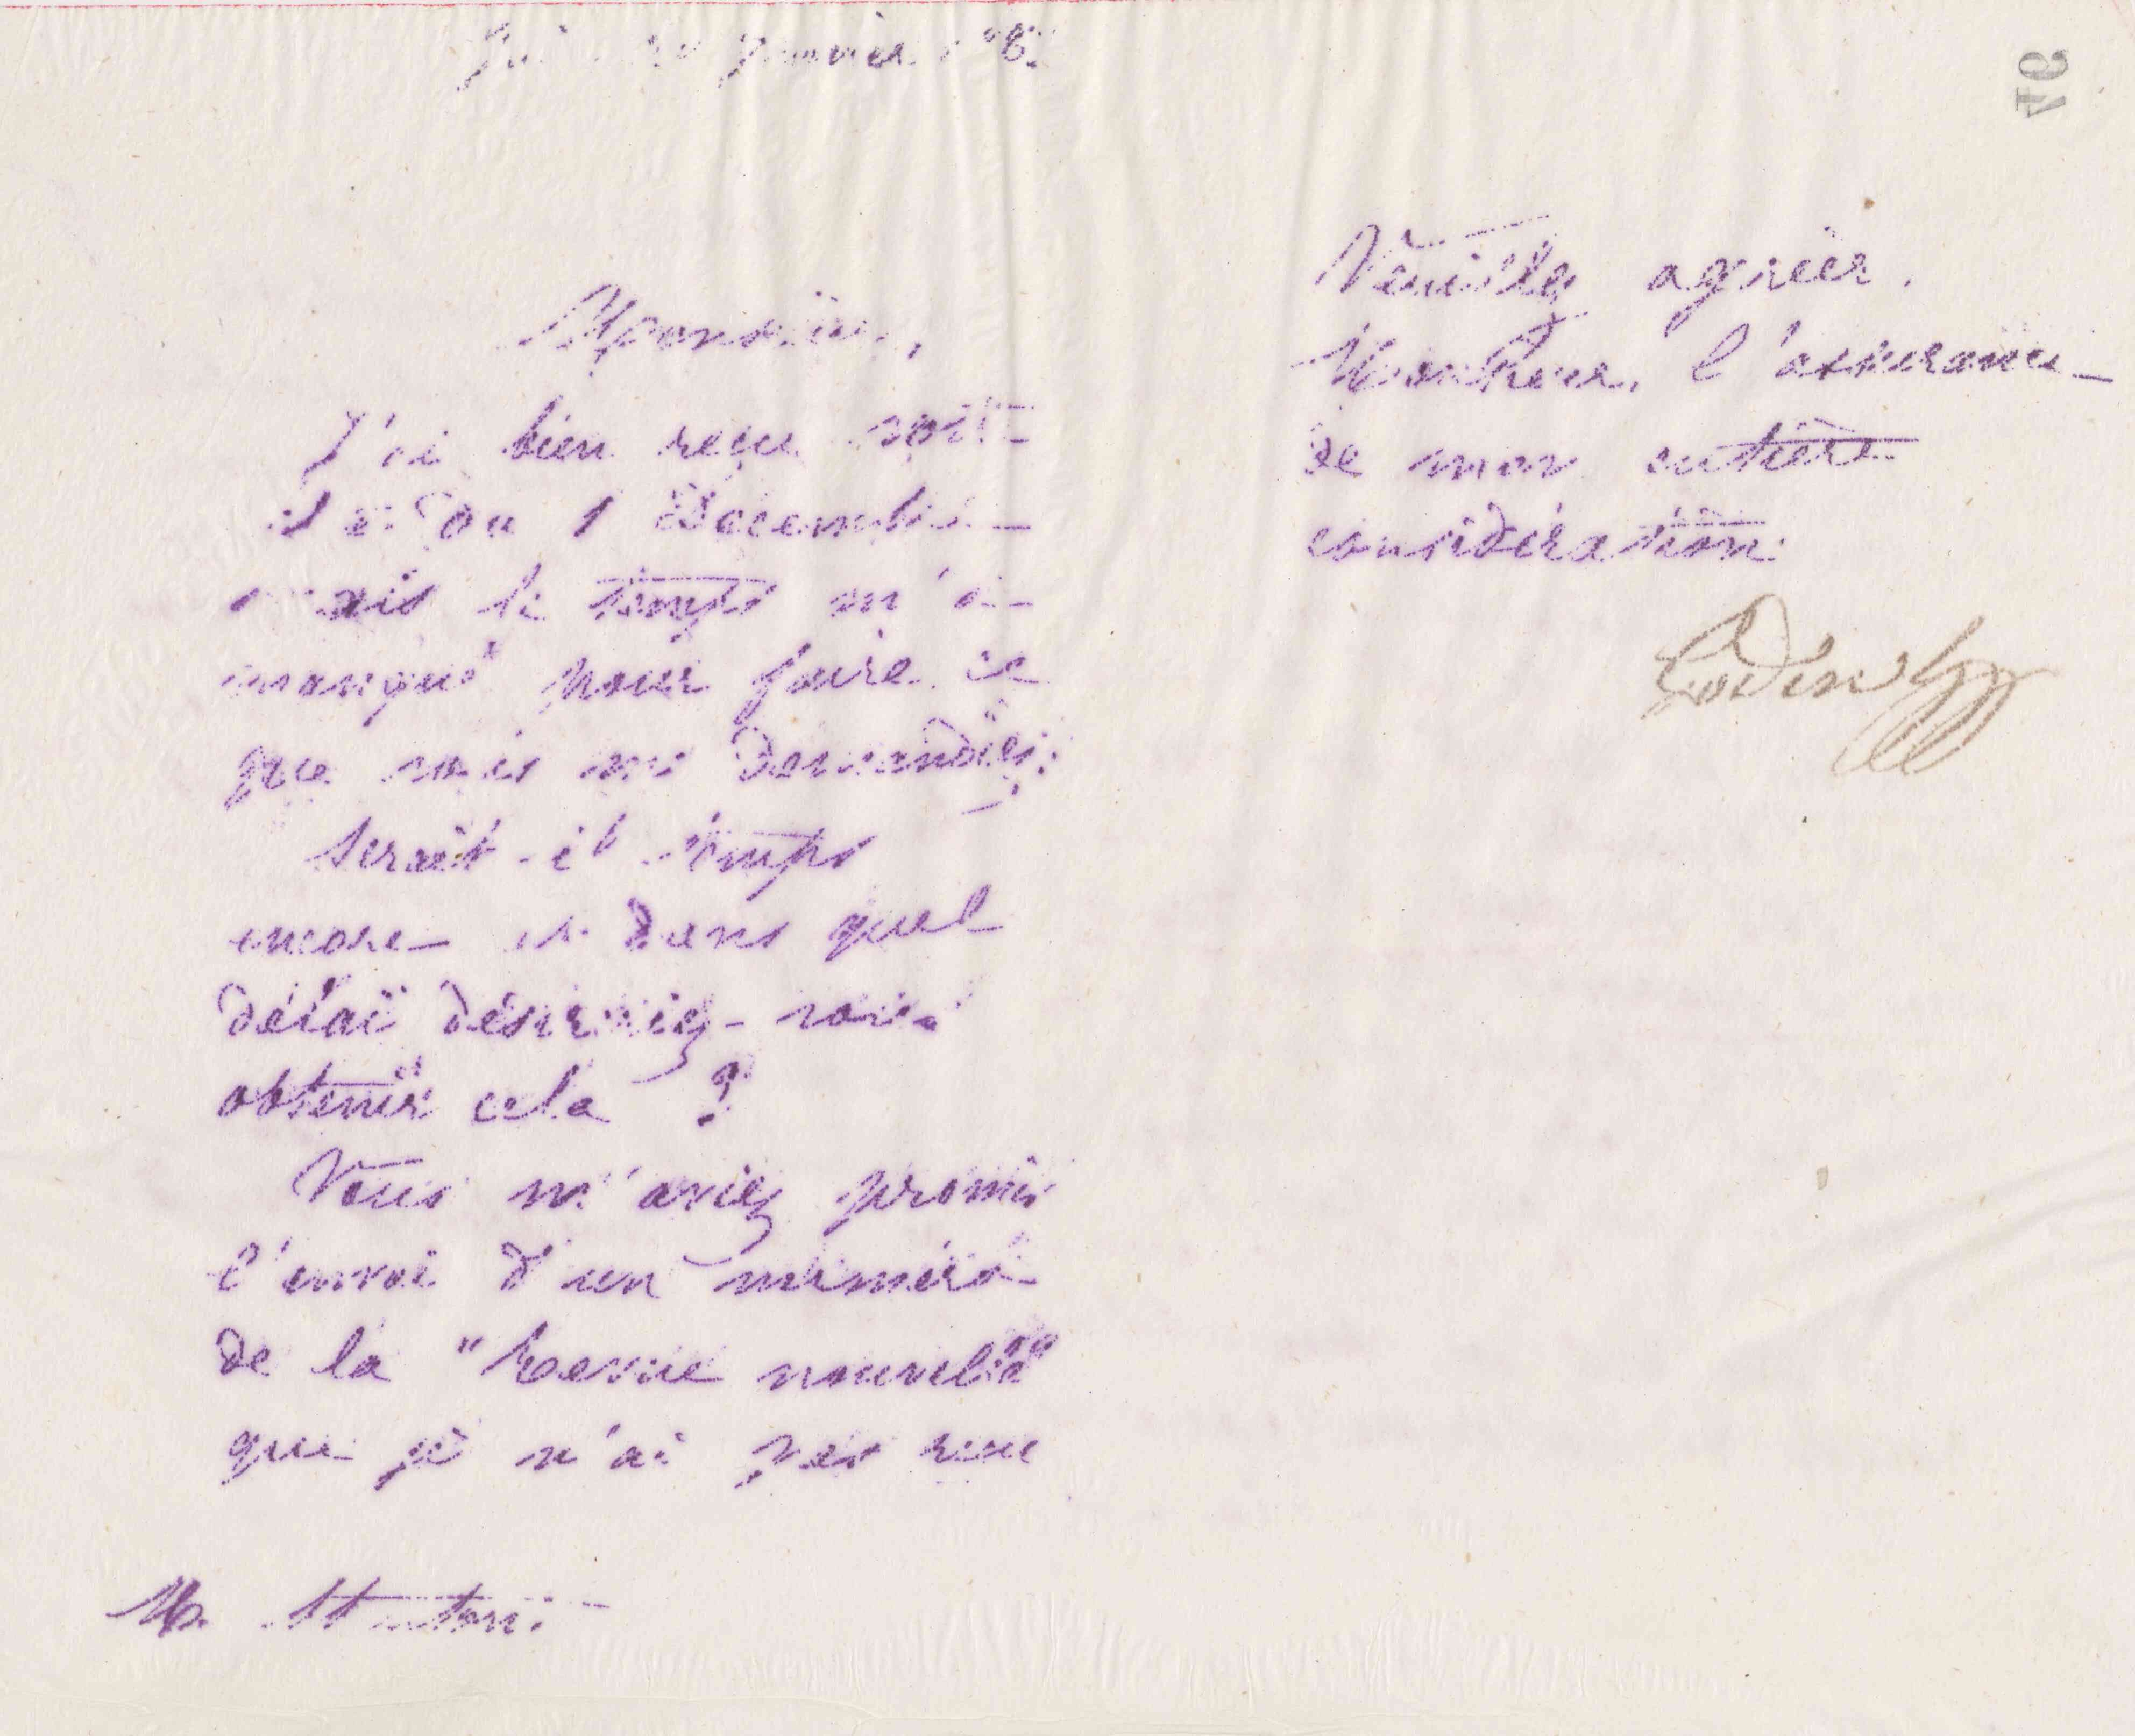 Janvier
Monsieur,
J'ai bien reçu votre
du 1 Décembre
mais le temps m'a
manqué pour faire ce
que vous me demandiez.
Serait-il temps
encore et dans quel
délai désireriez-vous
obtenir cela ?
Vous m'aviez promis
l'envoi d'un numéro
de la "Revue nouvelle"
que je n'ai pas reçu
M.
Veuillez agréer,
Monsieur, l'assurance
de mon entière
considération.
Godin
76